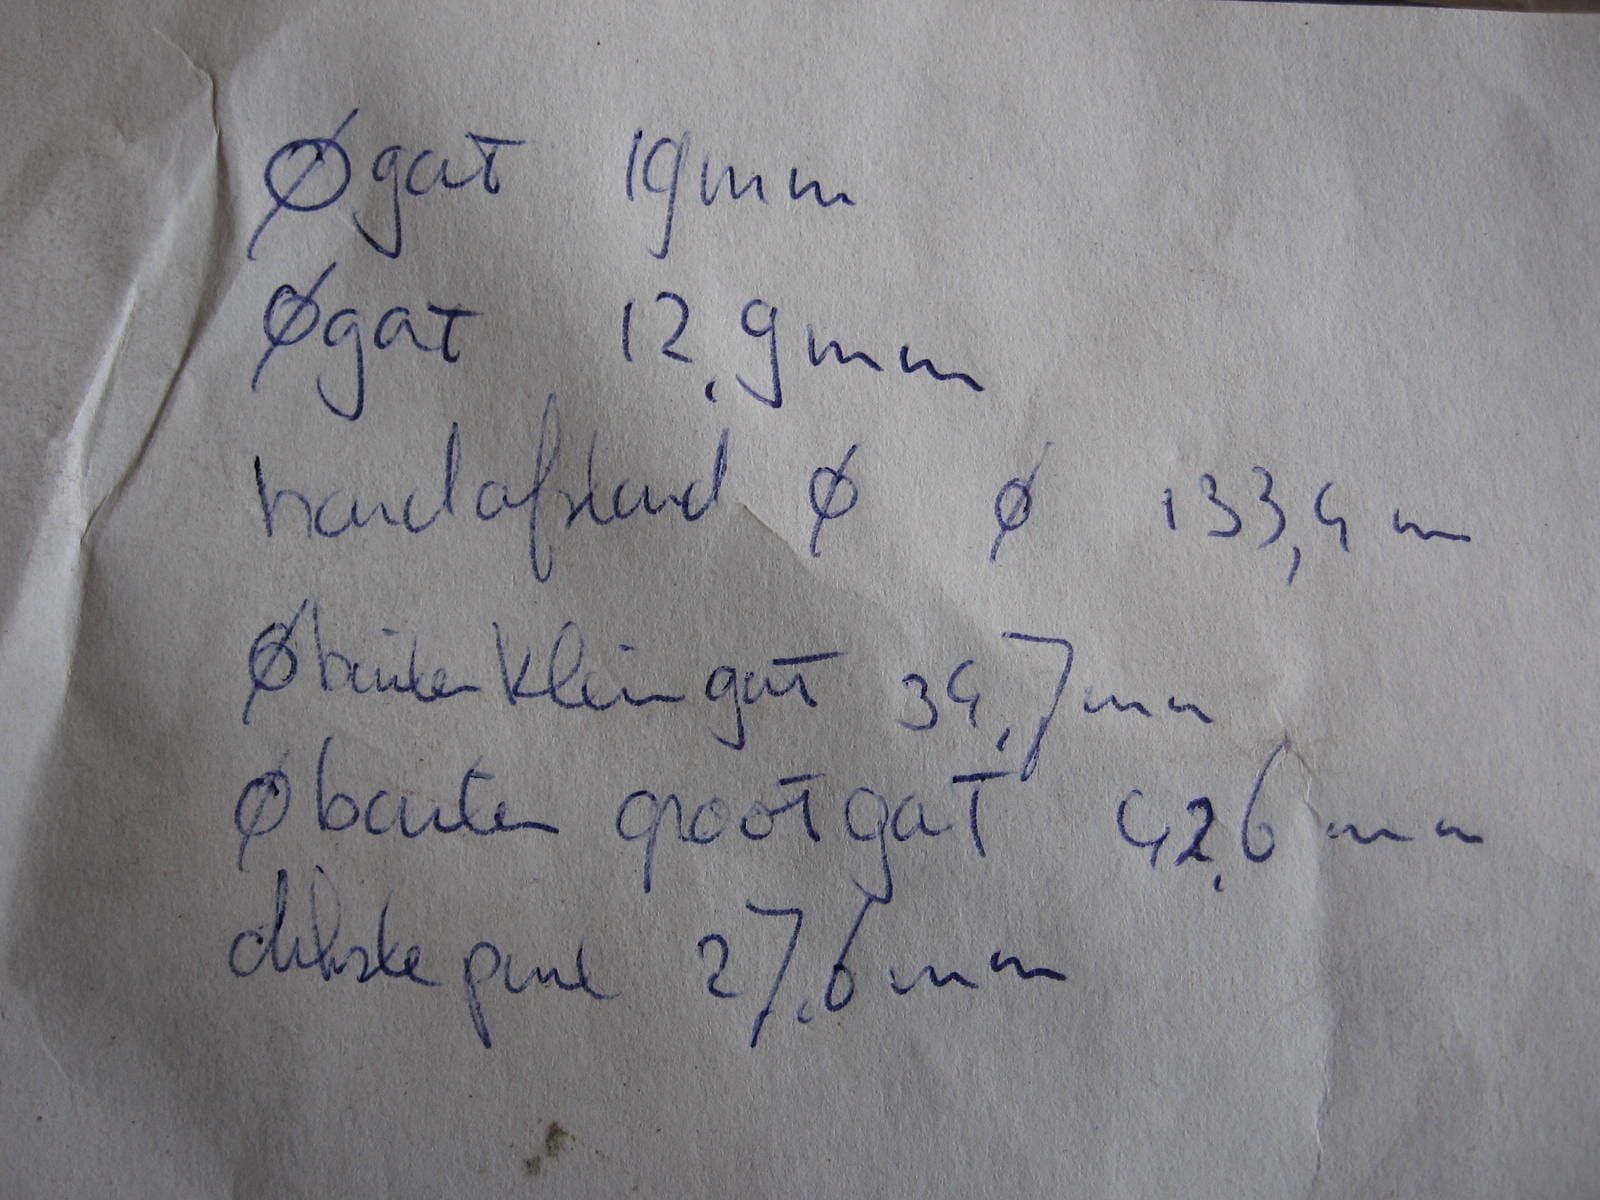 Ø gat 19mm
Ø gat 12,9mm
handafstand Ø Ø 133,4 m
Ø buiten klein gat 34,7mm
Ø buiten groot gat 42,6 mm
dikste punt 27,6mm